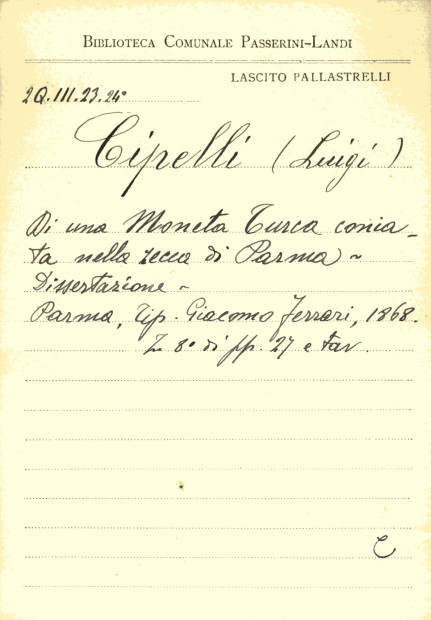 BIBLIOTECA COMUNALE PASSERINI-LANDI
LASCITO PALLASTRELLI
2Q.III.23.24°
Cipelli (Luigi)
Di una Moneta Turca conia-
ta nella zecca di Parma ~
Dissertazione -
Parma, Tip. Giacomo Ferrari, 1868.
In 8° di pp. 27 e tav.
C